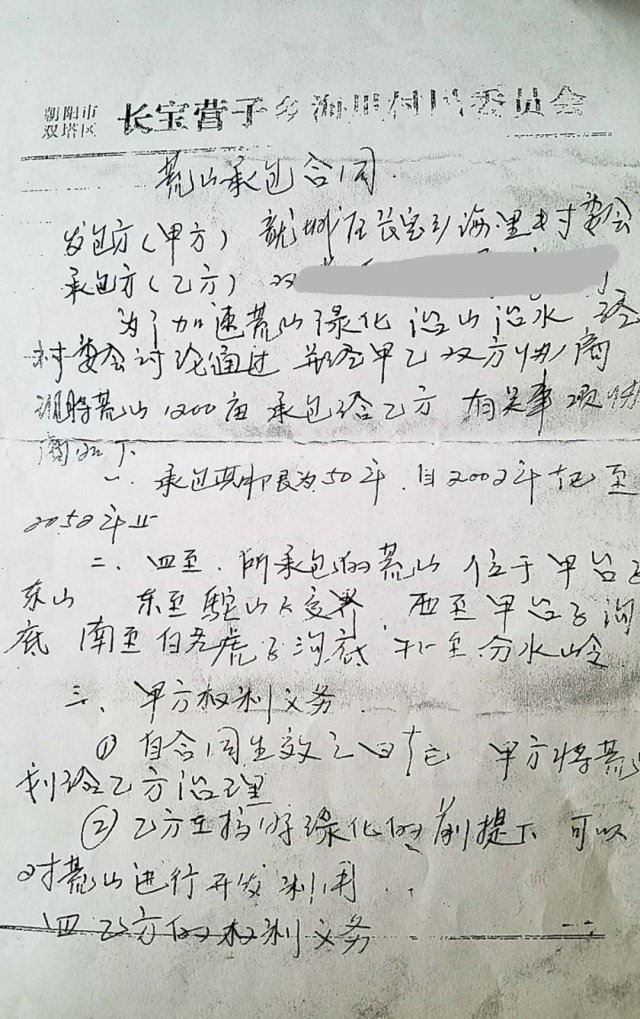 朝阳市
双塔区
长宝营子乡海里村村民委员会
荒山承包合同
发包方(甲方) 龙城区长宝乡海里村委会
承包方(乙方) 双
为了加速荒山绿化 治山治水 经
村委会讨论通过 并经甲乙双方协商
现将荒山1200亩 承包给乙方 有关事项协
商如下
一. 承包期限为50年. 自2002年起至
2052年止
二. 四至. 所承包的荒山 位于甲台子
东山 东至 山 交界 西至甲台子沟
底 南至 虎子沟底 北至分水岭
三、甲方权利义务.
① 自合同生效之日起 甲方将荒山
划给乙方治理
② 乙方在搞好绿化的前提下 可以
对荒山进行开发利用.
四 乙方的权利义务